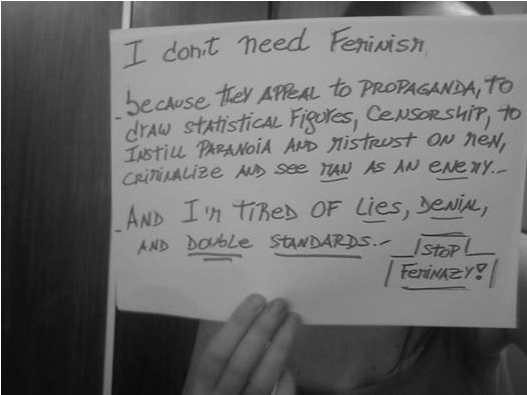 I don't need Feminism,
- because they appeal to propaganda, to
draw statistical figures, censorship, to
instill paranoia and mistrust on men,
criminalize and see man as an enemy.-
- And I'm tired of lies, denial,
and double standards.-
Stop
Feminazy!